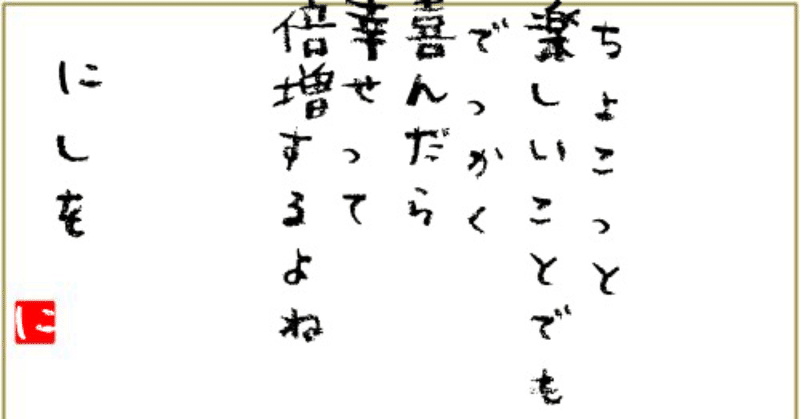 ちょこっと
楽しいことでも
でっかく
喜んだら
幸せって
倍増するよね
にしを
に